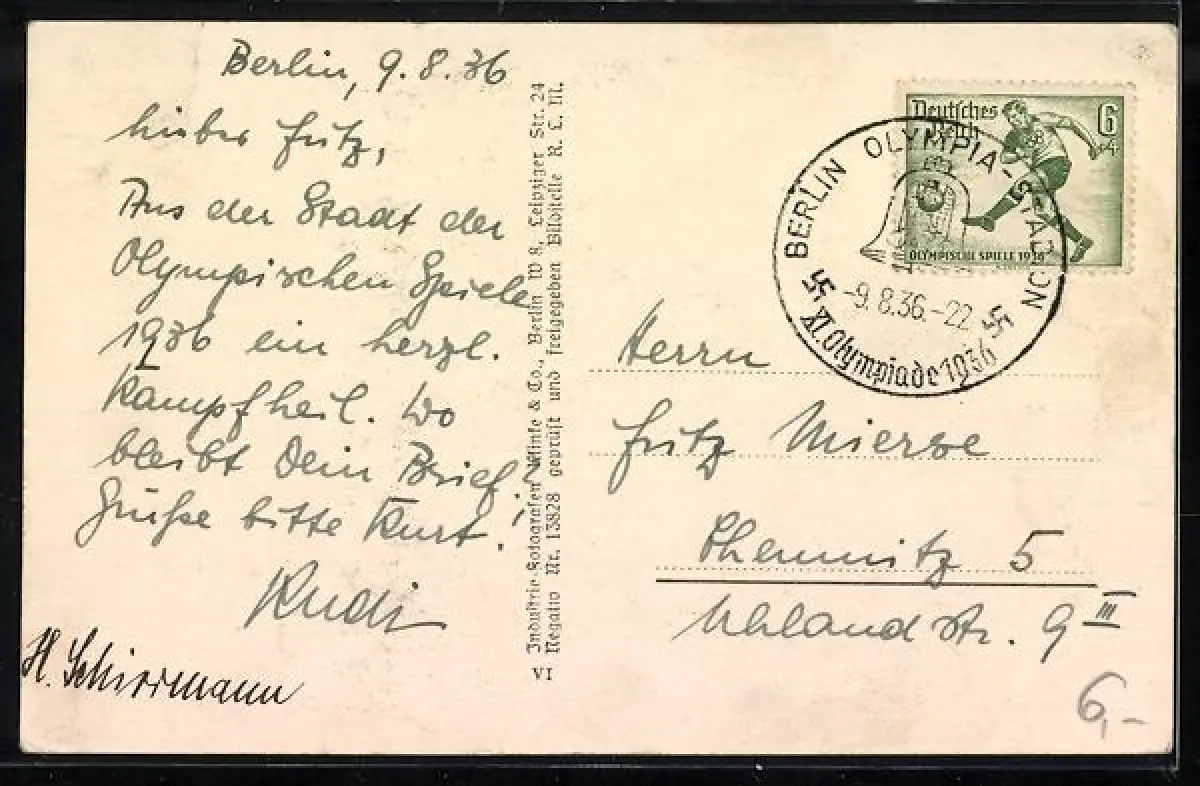 Berlin, 9.8.36
Lieber Fritz,
Aus der Stadt der
Olympischen Spiele
1936 ein herzl.
Kampfheil. Wo
bleibt Dein Brief?
Grüße bitte Kurt!
Rudi
H. Schirrmann
Industrie-Fotografen Klinke & Co., Berlin W 8, Leipziger Str. 24
Negativ Nr. 13828 geprüft und freigegeben Bildstelle R. L. M.
VI
Deutsches
Reich
6
+4
OLYMPISCHE SPIELE 1936
BERLIN OLYMPIA-STADION
-9.8.36.-22
XI. Olympiade 1936
Herrn
Fritz
Chemnitz 5
Uhlandstr. 9 III
6,-